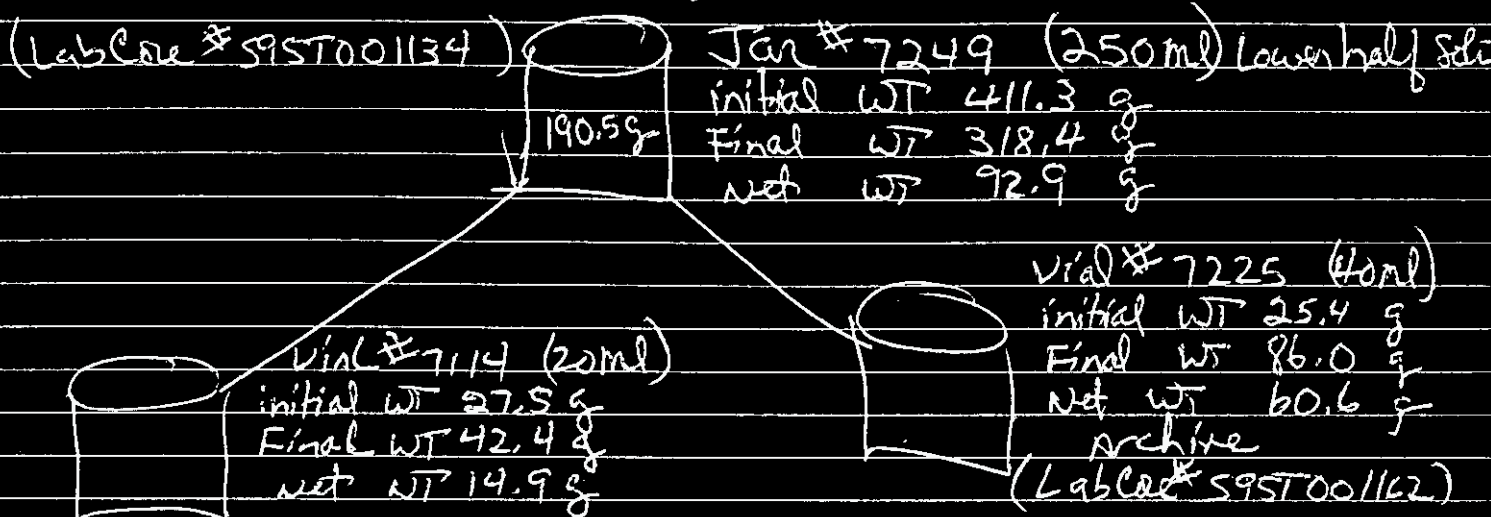 (LabCore # S95T001134) Jar # 7249 (250 ml) Lower half
initial WT 411.3 g
190.5 g Final WT 318.4 g
Net WT 92.9 g
Vial # 7225 (40ml)
initial WT 25.4 g
Final WT 86.0 g
Net WT 60.6 g
Archive
(LabCore # S95T001162)
Vial # 7114 (20ml)
initial WT 27.5 g
Final WT 42.4 g
Net WT 14.9 g